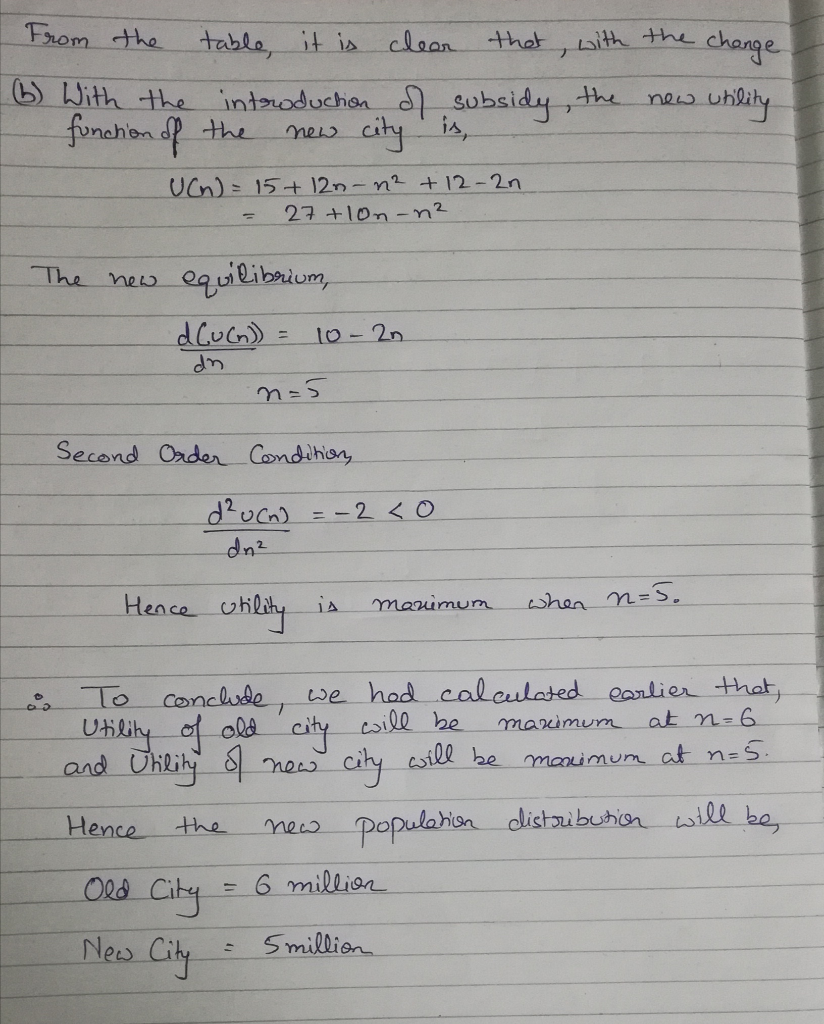 From the table, it is clear that, with the change
(b) With the introduction of subsidy, the new utility
function of the new city is,
U(n) = 15 + 12n - n² + 12 - 2n
= 27 + 10n - n²
The new equilibrium,
d(u(n)) = 10 - 2n
dn
n = 5
Second Order Condition,
d²u(n) = -2 < 0
dn²
Hence utility is maximum when n=5.
∴ To conclude, we had calculated earlier that,
Utility of old city will be maximum at n=6
and Utility of new city will be maximum at n=5.
Hence the new population distribution will be,
Old City = 6 million
New City = 5 million